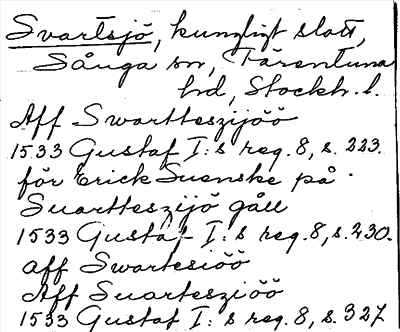 Svartsjö, kungligt slott,
Sånga sn, Färentuna
hd, Stockh. l.
Aff Swartteszijöö
1533 Gustaf I:s reg. 8, s. 223.
för Erick Suenske på
Suartteszijö gåll
1533 Gustaf I:s reg. 8, s. 230.
aff Swartesiöö
Aff Suartesziöö
1533 Gustaf I:s reg. 8, s. 327